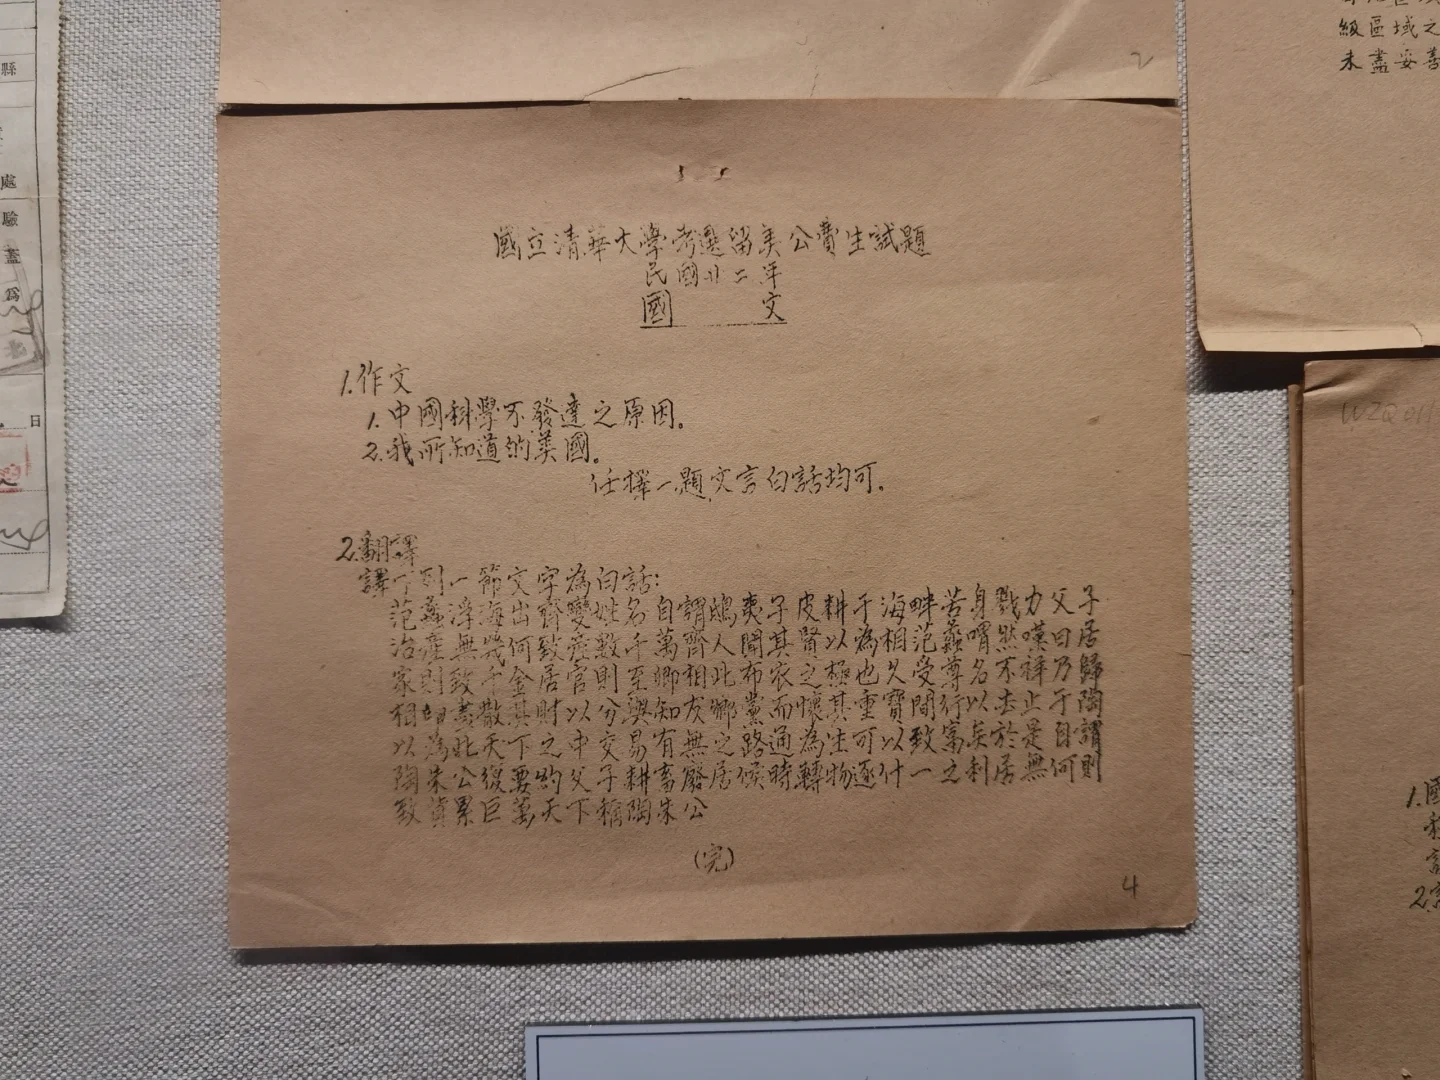 國立清華大學考選留美公費生試題
民國廿二年
國 文
1.作文
1.中國科學不發達之原因。
2.我所知道的美國。
任擇一題,文言白話均可.
2.翻譯
譯下列一節文字為白話:
范蠡浮海出齊變姓名自謂鴟夷子皮耕于海畔苦身戮力父子
治產無幾何致產數千萬齊人聞其賢以為相范蠡喟然嘆曰居
家則致千金居官則至卿相此布衣之極也久受尊名不祥乃歸
相印盡散其財以分與知友鄉黨而懷其重寶間行以去止于陶
以為此天下之中交易有無之路通為生可以致富矣於是自謂
陶朱公復要約父子耕畜廢居候時轉物逐什一之利居無何則
致貲累巨萬天下稱陶朱公
(完)
4
2
級區域之
未盡妥善
縣
處
驗
蓋
為
日
1.國
2.